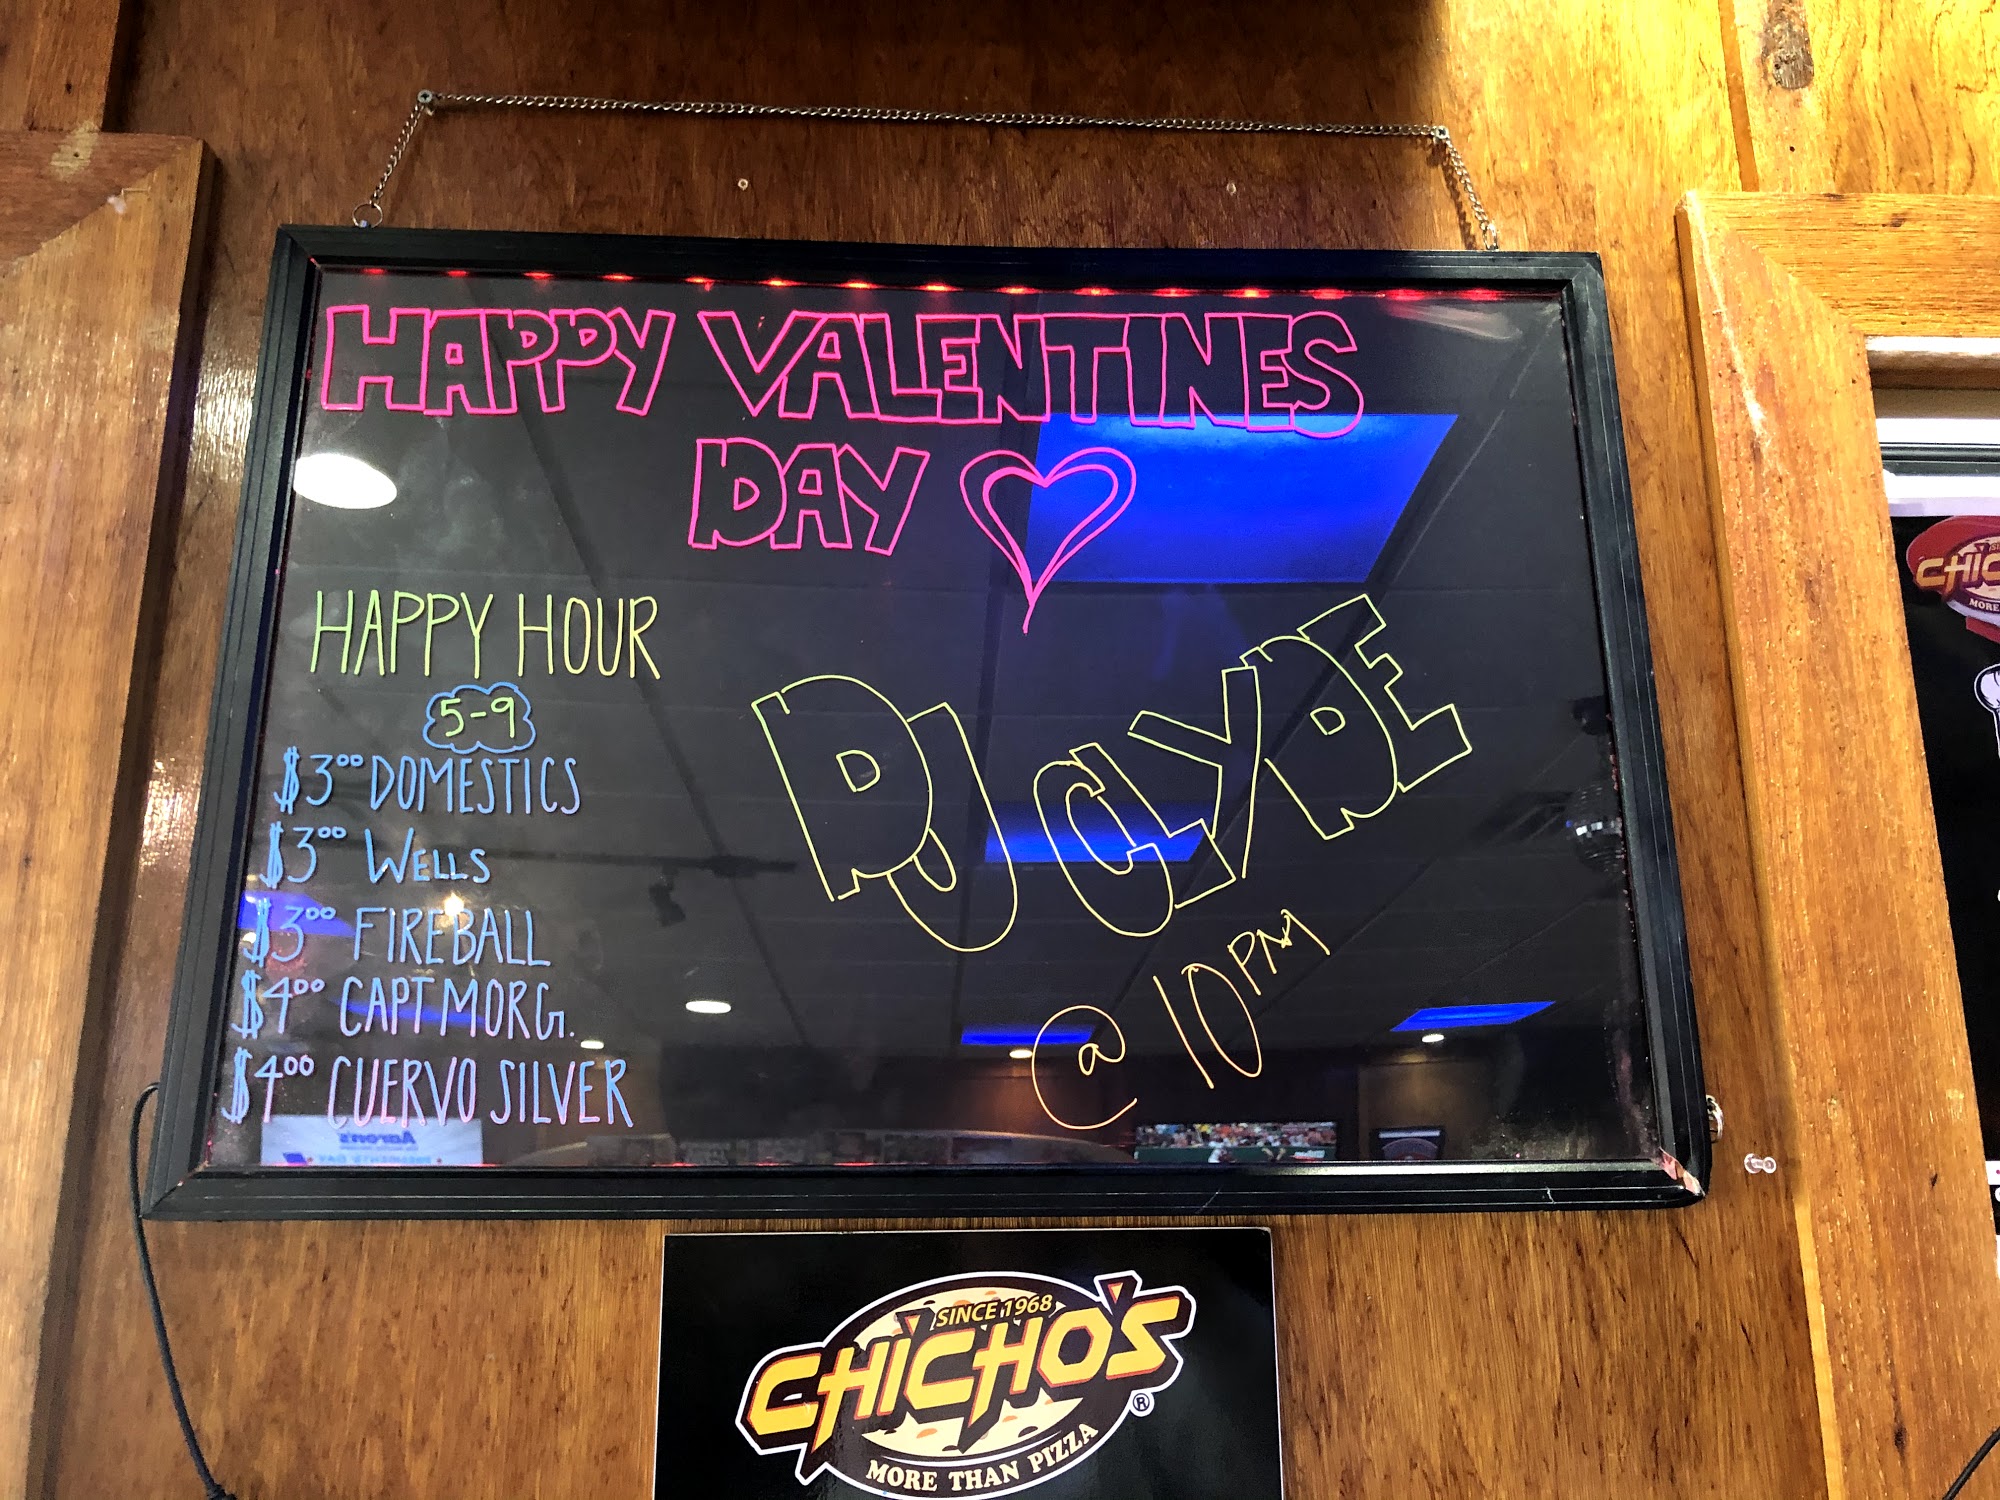 HAPPY VALENTINES
DAY
HAPPY HOUR
5-9
$3⁰⁰ DOMESTICS
$3⁰⁰ WELLS
$3⁰⁰ FIREBALL
$4⁰⁰ CAPT MORG.
$4⁰⁰ CUERVO SILVER
DJ CLYDE
@ 10PM
SINCE 1968
CHICHO'S
®
MORE THAN PIZZA
CHIC
MORE